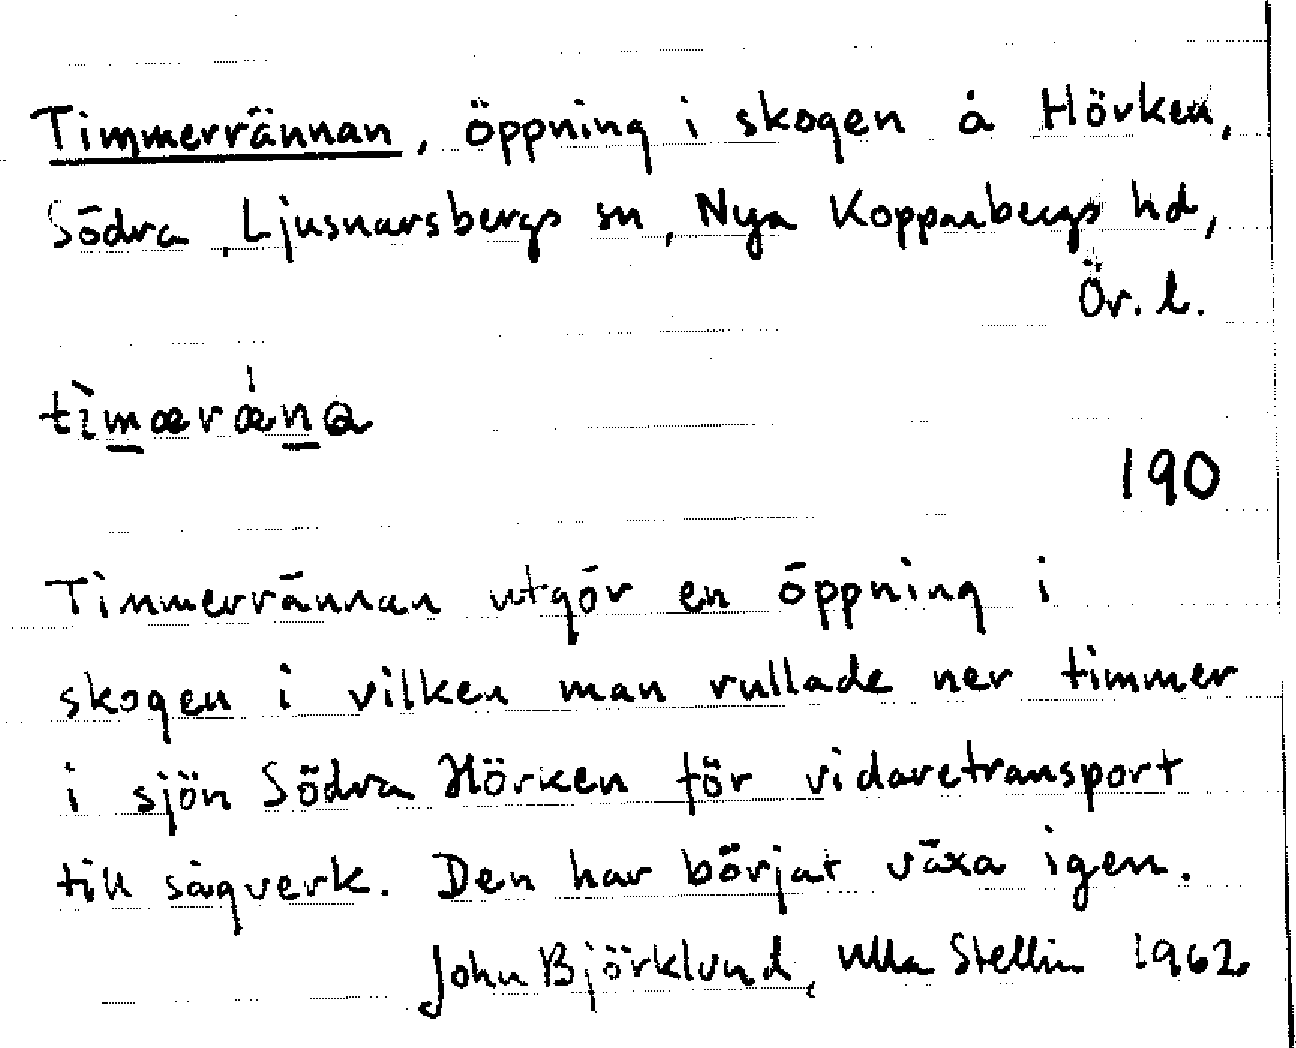 Timmerrännan, öppning i skogen å Hörken,
Södra, Ljusnarsbergs sn, Nya Kopparbergs hd,
Ör. l.
tìmæræ̀na
190
Timmerrännan utgör en öppning i
skogen i vilken man rullade ner timmer
i sjön Södra Hörken för vidaretransport
till sågverk. Den har börjat växa igen.
John Björklund, Ulla Stellin 1962